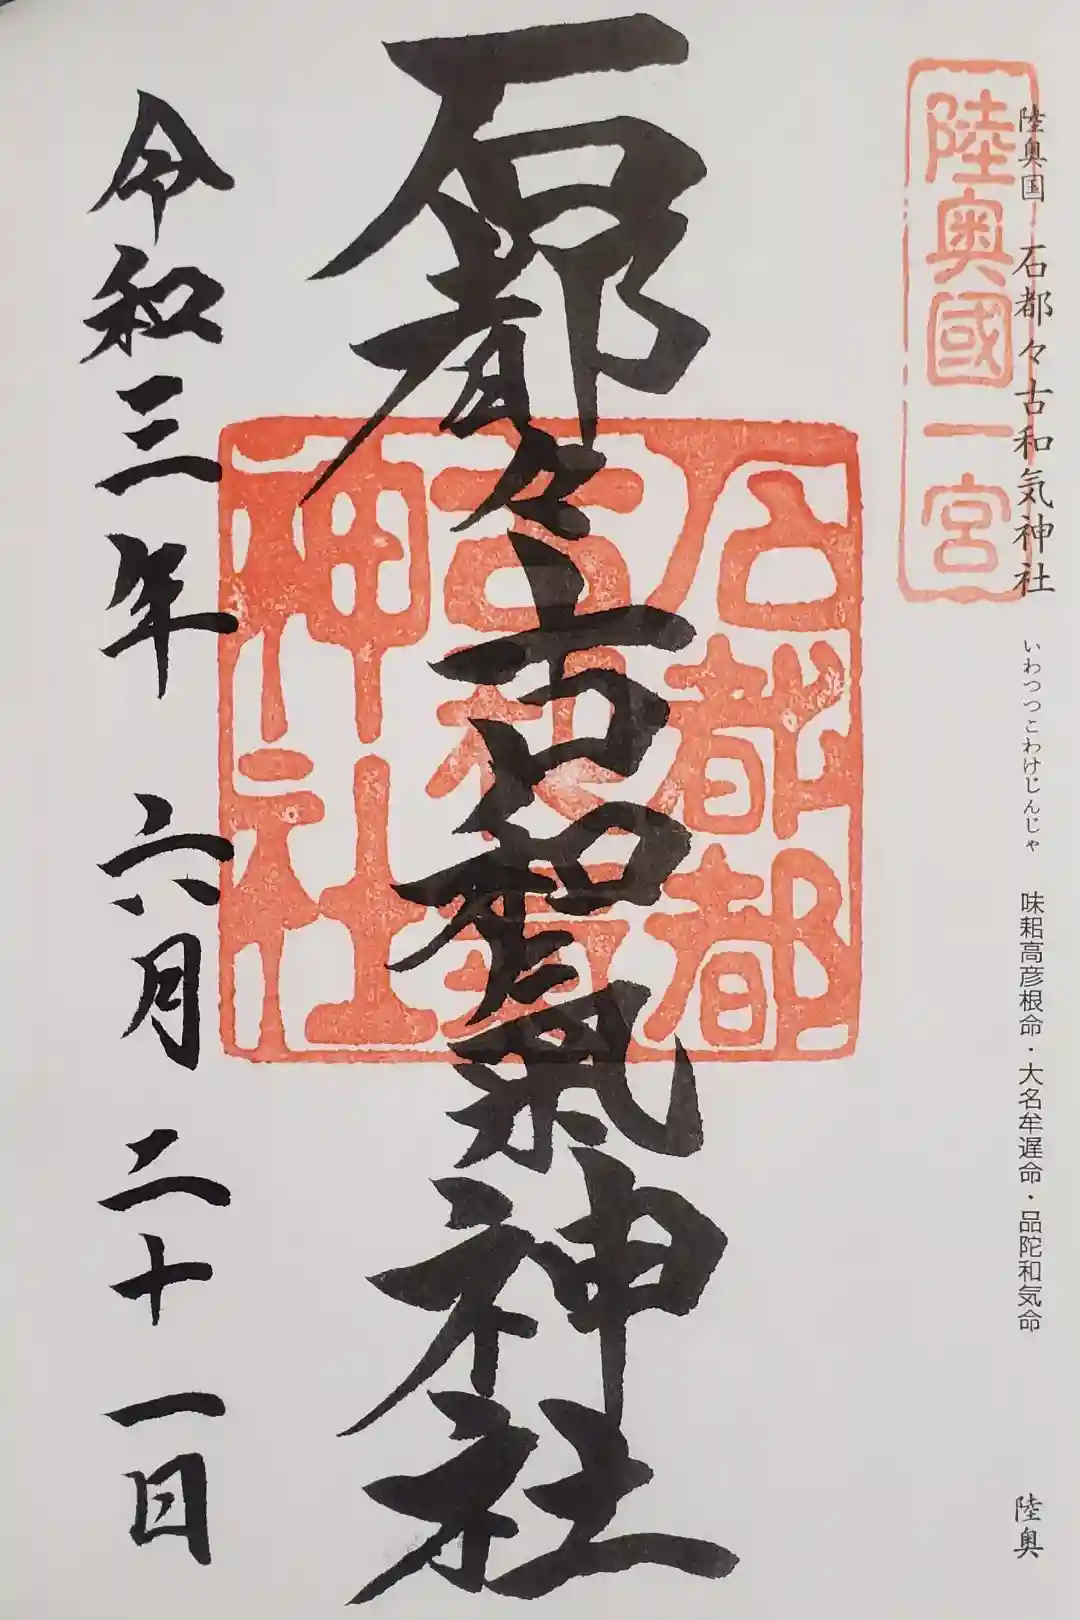 陸奥国 石都々古和気神社 いわつつこわけじんじゃ 味耜高彦根命・大名牟遅命・品陀和気命 陸奥
陸奥國一宮
石都々古和氣神社
石都都
古和氣
神社
令和三年 六月 二十一日